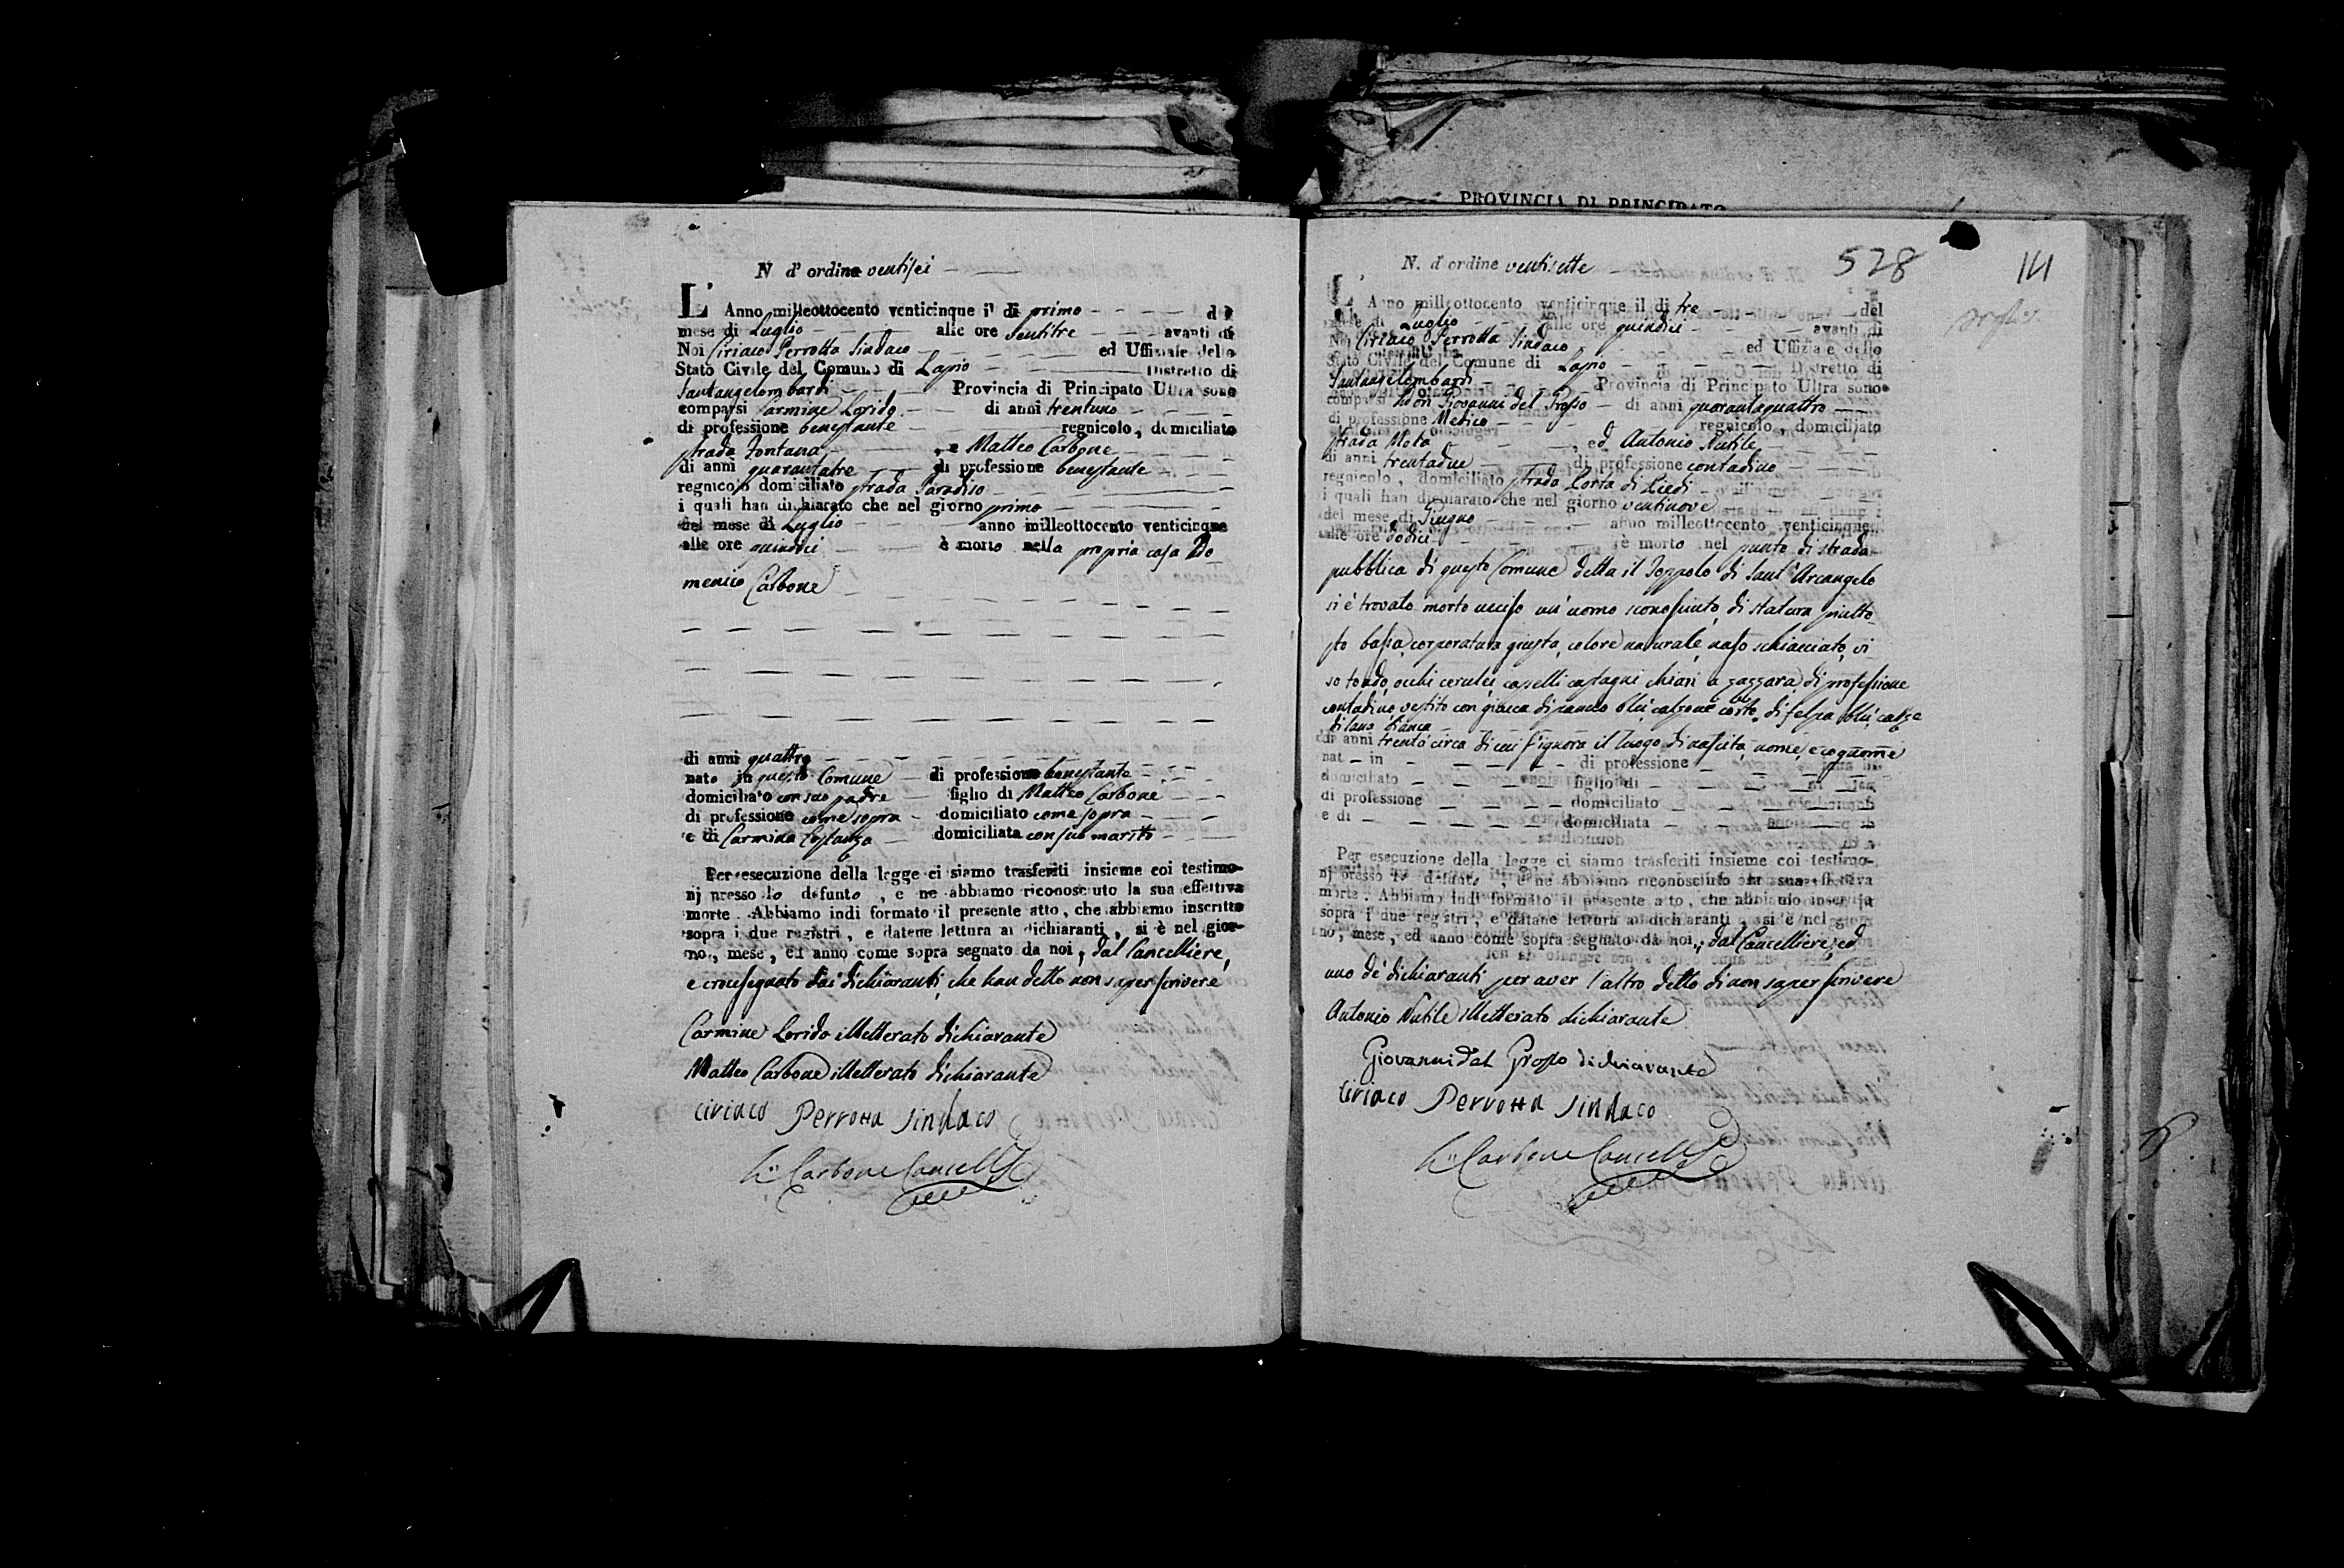 PROVINCIA DI PRINCIPATO
N. d'ordine ventisei
L'Anno milleottocento venticinque il di primo del
mese di Luglio alle ore ventitre avanti di
Noi Ciriaco Perrotta Sindaco ed Uffiziale dello
Stato Civile del Comune di Lapio Distretto di
Santangelombardi Provincia di Principato Ultra sono
comparsi Carmine Lorido di anni trentuno
di professione benestante regnicolo, domiciliato
strada Fontana, e Matteo Carbone
di anni quarantatre di professione benestante
regnicolo domiciliato strada Paradiso
i quali han dichiarato che nel giorno primo
del mese di Luglio anno milleottocento venticinque
alle ore quindici è morto nella propria casa Do
menico Carbone
di anni quattro
nato in questo Comune di professione benestante
domiciliato con suo padre figlio di Matteo Carbone
di professione come sopra domiciliato come sopra
e di Carmina Costanzo domiciliata con suo marito
Per esecuzione della legge ci siamo trasferiti insieme coi testimo-
nj presso lo defunto, e ne abbiamo riconosciuto la sua effettiva
morte. Abbiamo indi formato il presente atto, che abbiamo inscritto
sopra i due registri, e datene lettura ai dichiaranti, si è nel gior-
no, mese, ed anno come sopra segnato da noi, dal Cancelliere,
e crocesegnato dai dichiaranti, che han detto non saper scrivere
Carmine Lorido illetterato dichiarante
Matteo Carbone illetterato dichiarante
Ciriaco Perrotta Sindaco
Carbone Cancell
528
141
N. d'ordine ventisette
L'Anno milleottocento venticinque il di tre del
mese di Luglio alle ore quindici avanti di
Noi Ciriaco Perrotta Sindaco ed Uffiziale dello
Stato Civile del Comune di Lapio Distretto di
Santangelombardi Provincia di Principato Ultra sono
comparsi Don Giovanni del Grosso di anni quarantaquattro
di professione Medico regnicolo, domiciliato
strada Nota, ed Antonio Nutile
di anni trentadue di professione contadino
regnicolo, domiciliato strada Porta di Liedi
i quali han dichiarato che nel giorno ventinove
del mese di Giugno anno milleottocento venticinque
alle ore dodici è morto nel punto di strada
pubblica di questo Comune detta il Toppolo di Sant'Arcangelo
si è trovato morto ucciso un'uomo sconosciuto, di statura piutto
sto bassa, corporatura giusta, colore naturale, naso schiacciato, vi
so tondo, occhi cerulei, capelli castagni chiari a zazzara, di professione
contadino, vestito con giacca di panno blù, calzone corto di felpa blù, calze
di lana bianca
di anni trenta circa di cui s'ignora il luogo di nascita, nome, e cognome
nat in di professione
domiciliato figlio di
di professione domiciliato
e di domiciliata
Per esecuzione della legge ci siamo trasferiti insieme coi testimo-
nj presso lo defunto, e ne abbiamo riconosciuto la sua effettiva
morte. Abbiamo indi formato il presente atto, che abbiamo inscritto
sopra i due registri, e datane lettura ai dichiaranti, si è nel gior-
no, mese, ed anno come sopra segnato da noi, dal Cancelliere, ed
uno de' dichiaranti per aver l'altro detto di non saper scrivere
Antonio Nutile illetterato dichiarante
Giovanni del Grosso dichiarante
Ciriaco Perrotta Sindaco
Carbone Cancell